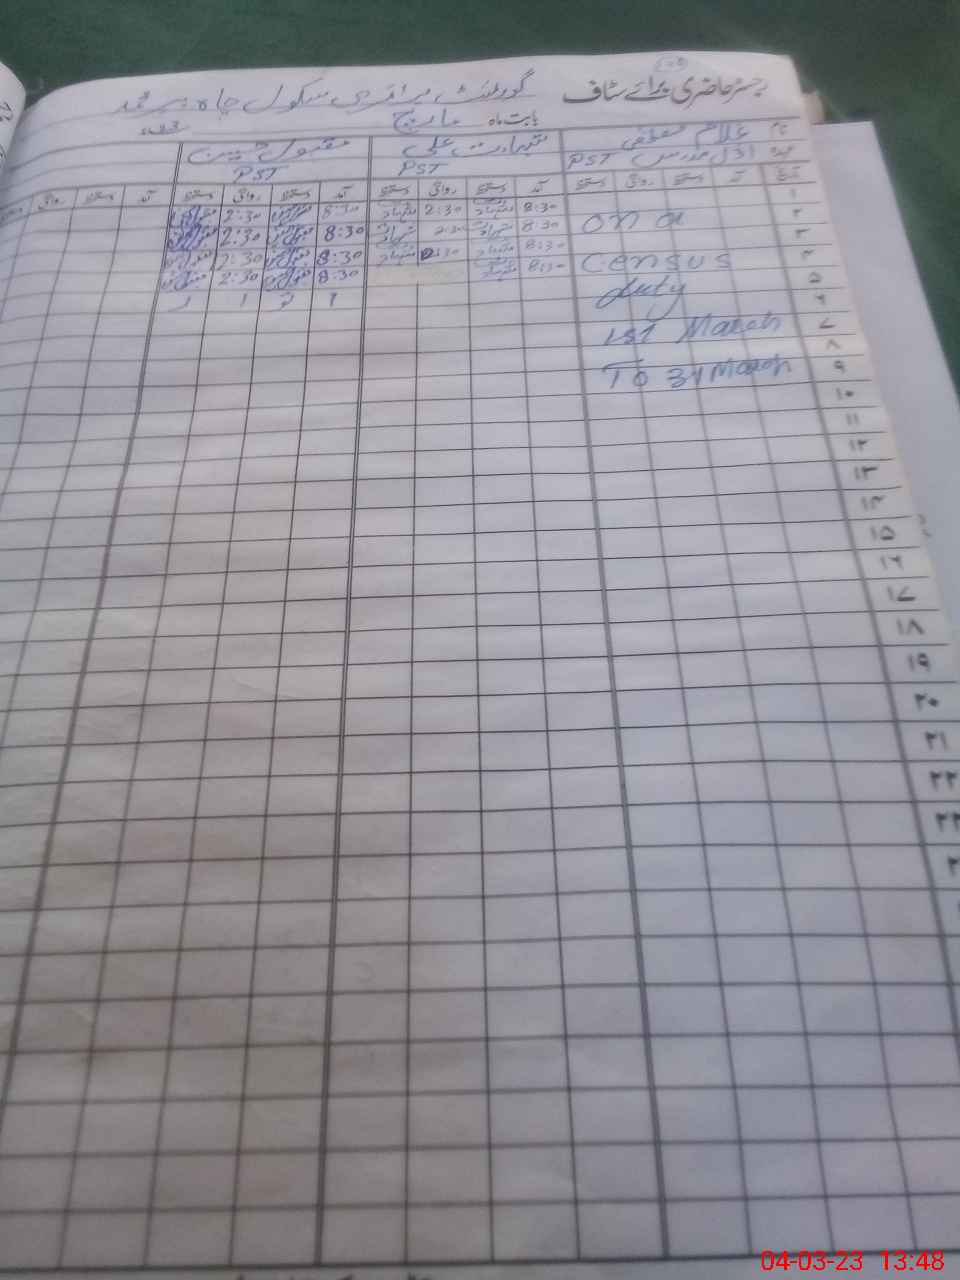 رجسٹر حاضری برائے سٹاف گورنمنٹ پرائمری سکول چاہ پیر محمد
بابت ماہ مارچ
نام غلام مصطفیٰ شہادت علی مقبول حسین
عہدہ اول مدرس PST PST PST
تاریخ آمد دستخط روانگی دستخط آمد دستخط روانگی دستخط آمد دستخط روانگی دستخط آمد دستخط روانگی دستخط
۱ 8:30 2:30 8:30 2:30
۲ on a 8:30 2:30 8:30 2:30
۳ 8:30 2:30 8:30 2:30
۴ Census 8:30 8:30 2:30
۵ duty
۶
۷ 1st March
۸
۹ To 31 March
۱۰
۱۱
۱۲
۱۳
۱۴
۱۵
۱۶
۱۷
۱۸
۱۹
۲۰
۲۱
۲۲
۲۳
04-03-23 13:48